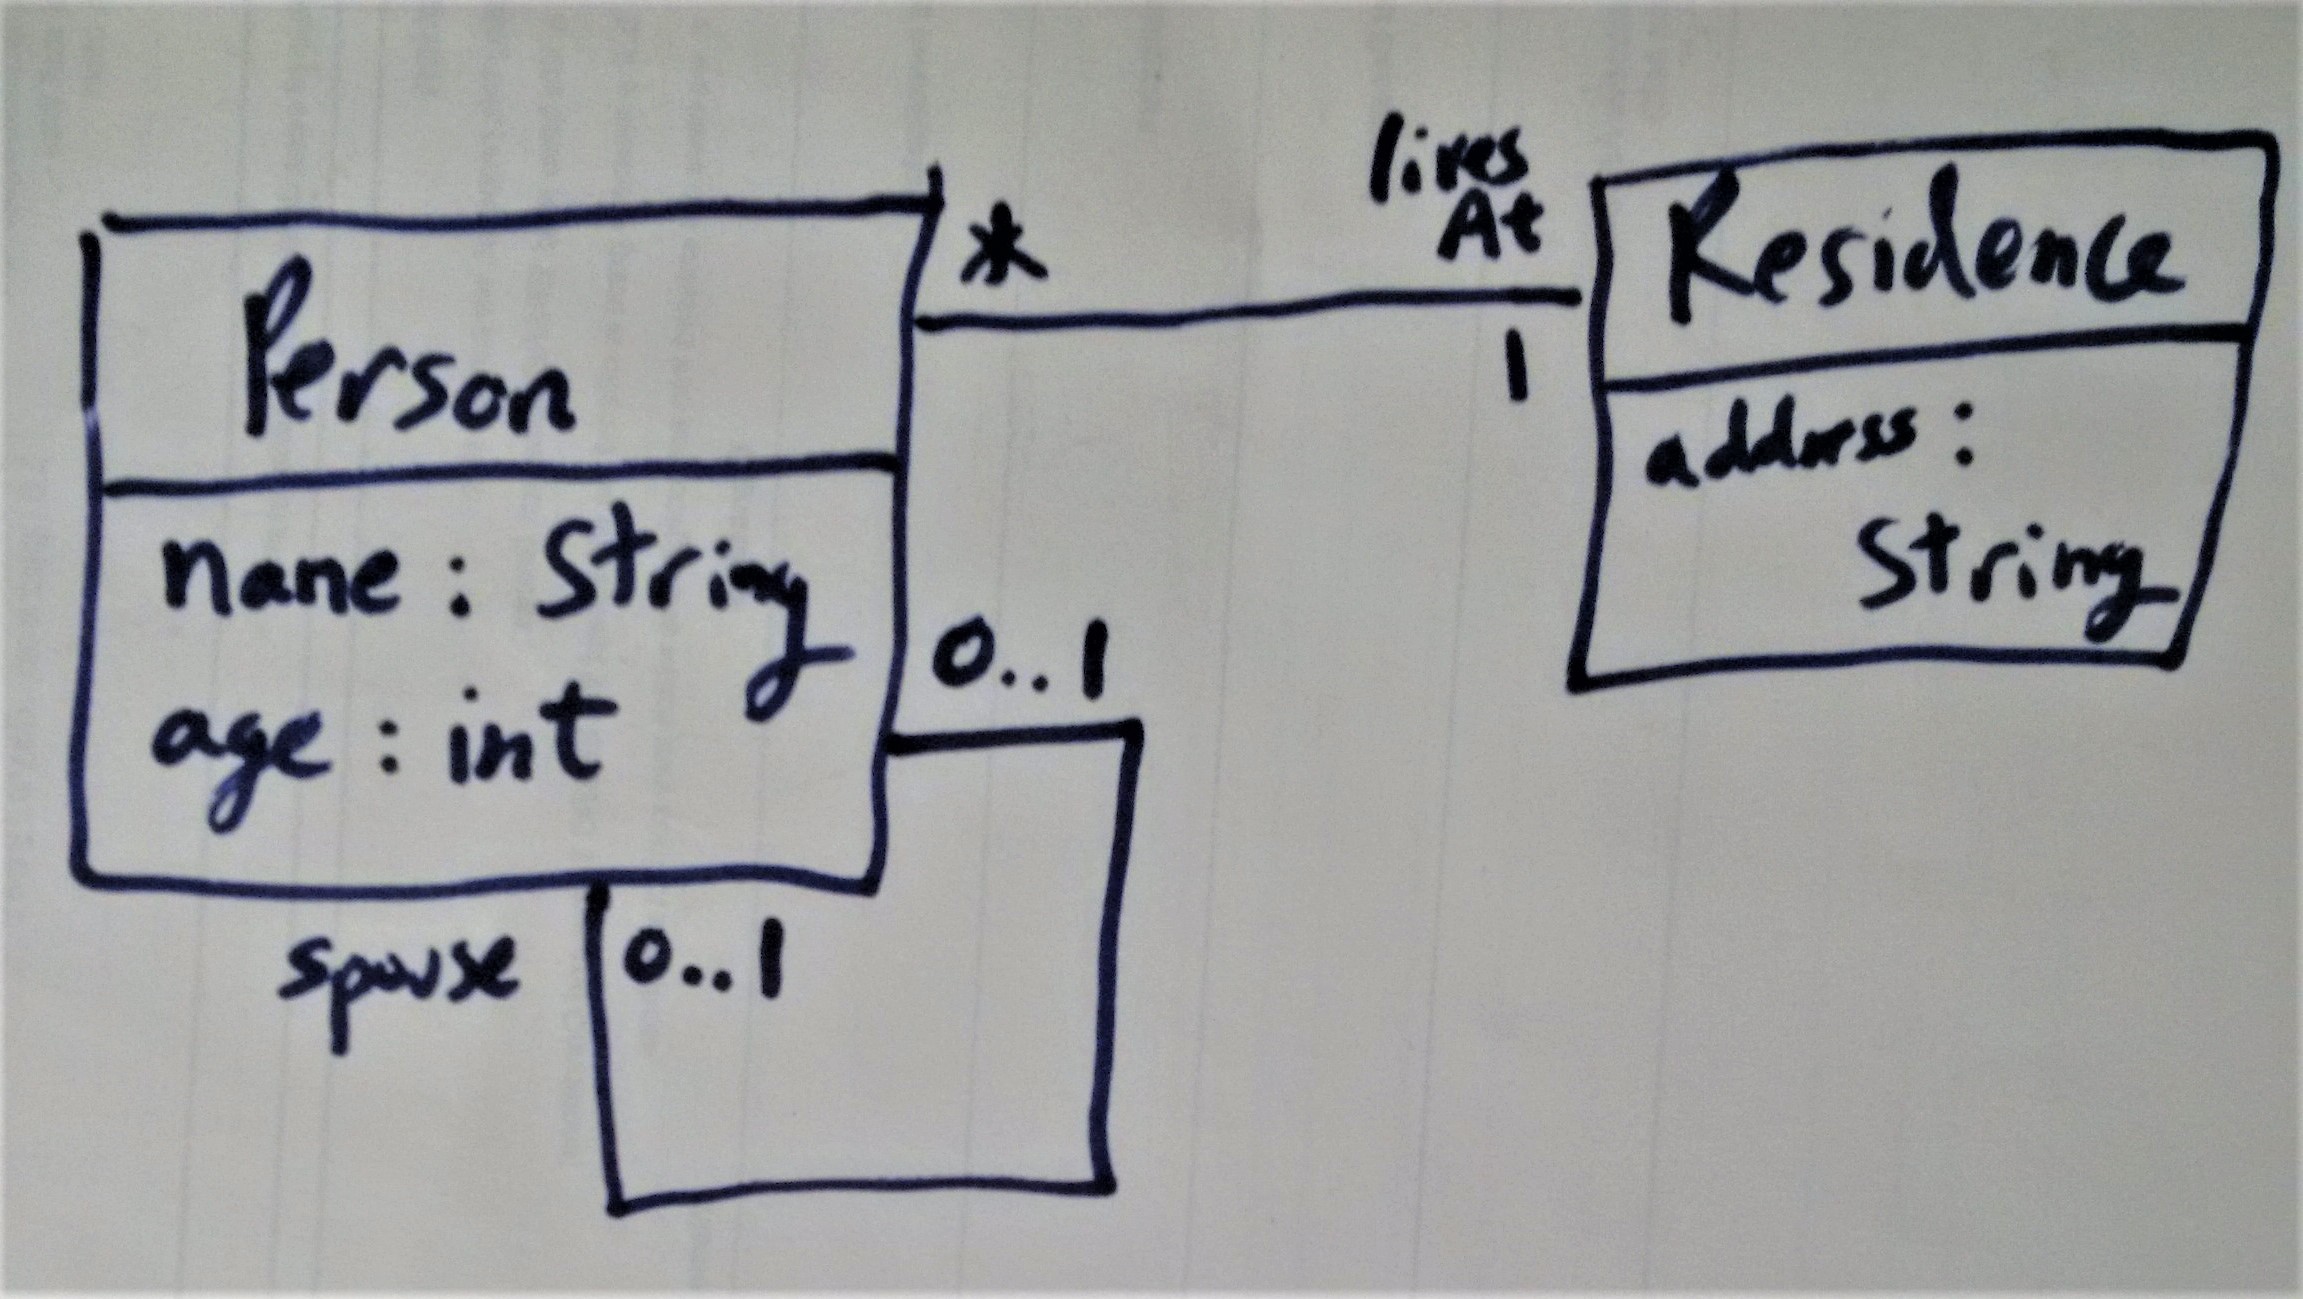 Person
name : String
age : int
*
lives
At
1
Residence
address :
String
0..1
spouse
0..1